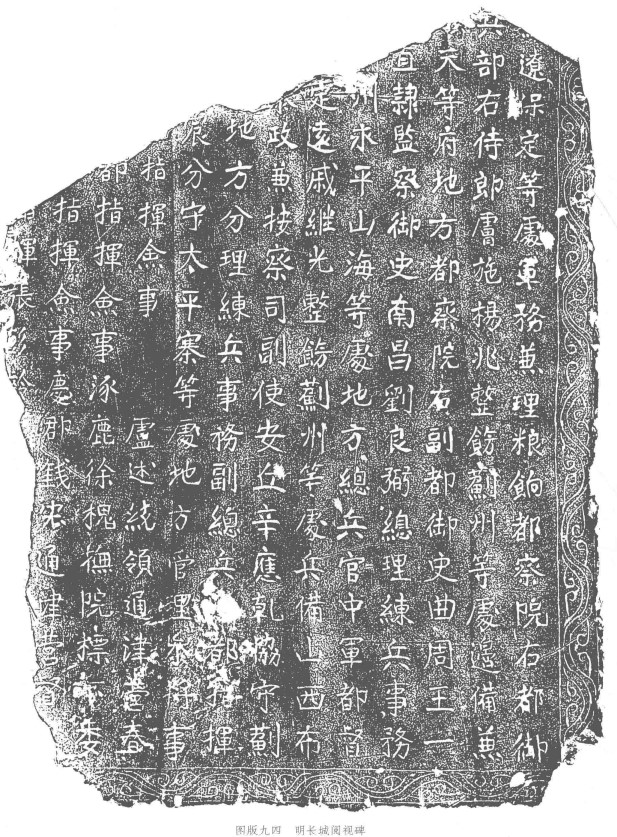 遼保定等處軍務兼理粮餉都察院右都御
兵部右侍郎膚施楊兆整飭薊州等處邊備兼
天等府地方都察院右副都御史曲周王一
直隸監察御史南昌劉良弼總理練兵事務
州永平山海等處地方總兵官中軍都督
定遠戚繼光整飭薊州等處兵備山西布
政兼按察司副使安丘辛應乾協守薊
地方分理練兵事務副總兵都指揮
分守太平寨等處地方管叅將事
指揮僉事盧述統領通津臺春
都指揮僉事涿鹿徐槐撫院標下委
指揮僉事慶郡錢忠通建營
指揮張
图版九四 明长城阅视碑